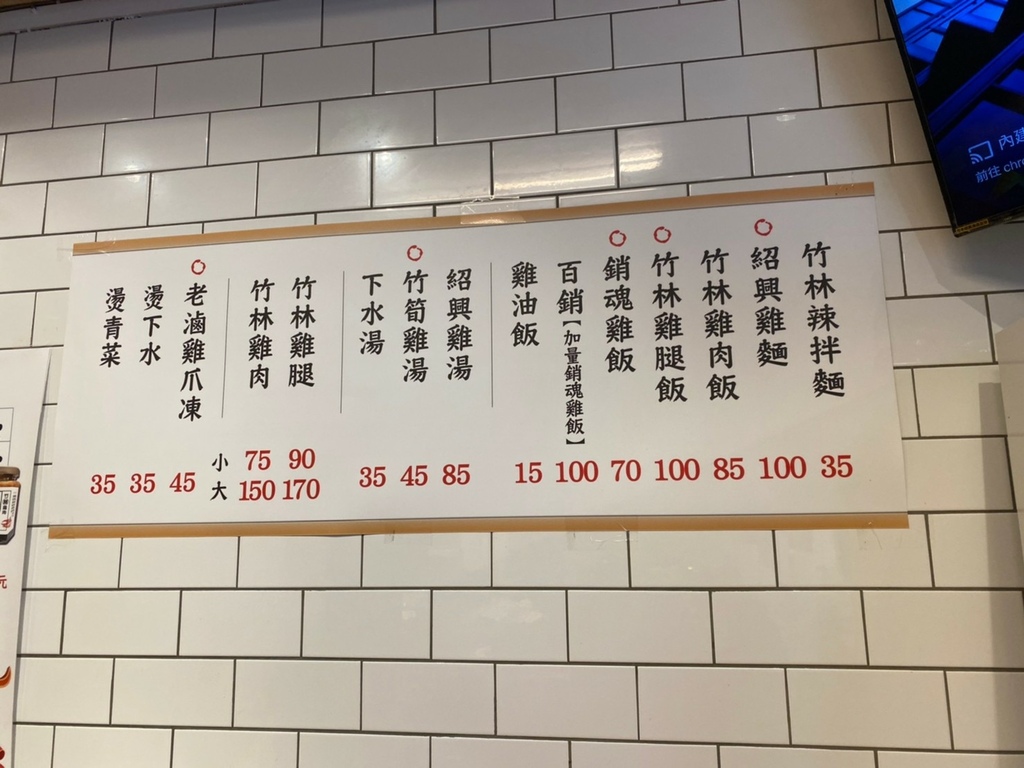 竹林辣拌麵 35
紹興雞麵 100
竹林雞肉飯 85
竹林雞腿飯 100
銷魂雞飯 70
百銷【加量銷魂雞飯】 100
雞油飯 15
紹興雞湯 85
竹筍雞湯 45
下水湯 35
竹林雞腿 小 90 大 170
竹林雞肉 小 75 大 150
老滷雞爪凍 45
燙下水 35
燙青菜 35
內建
前往 chro
元